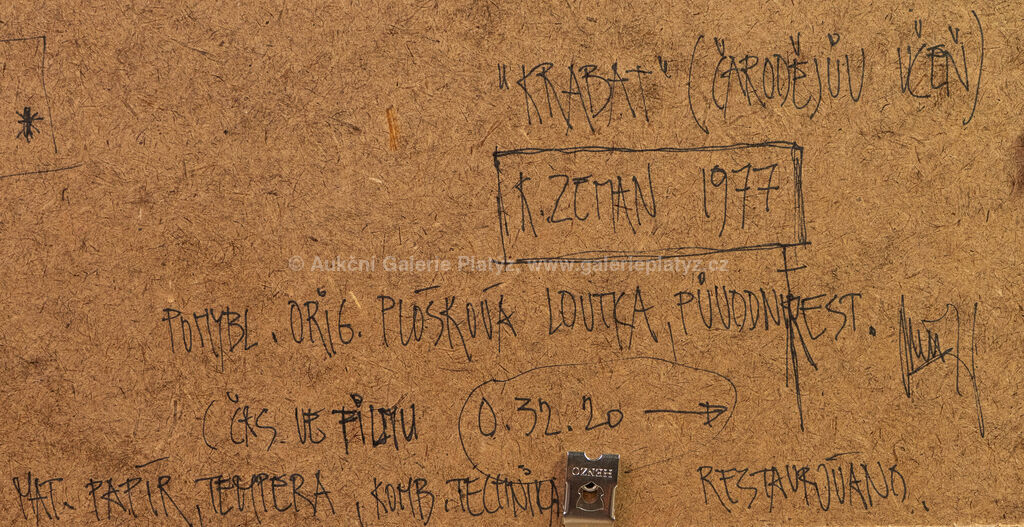 "KRABAT" (ČARODĚJŮV UČEŇ)
K. ZEMAN 1977
© Aukční Galerie Platýz, www.galerieplatyz.cz
POHYBL. ORIG. PLOŠKOVÁ LOUTKA, PŮVODNÍ REST.
(ČAS VE FILMU 0.32.20 →
HENZO
MAT. PAPÍR, TEMPERA, KOMB. TECHNIKA RESTAUROVÁNO.